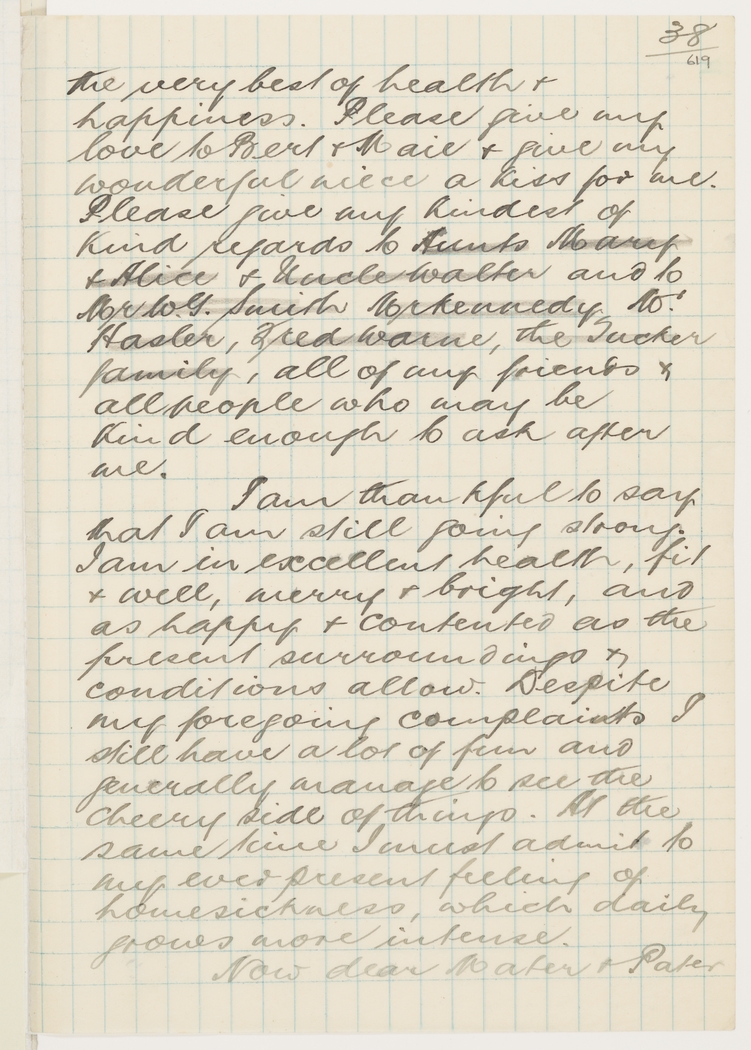 38
619
the very best of health &
happiness. Please give my
love to Bert & Maie & give my
wonderful niece a kiss for me.
Please give my kindest of
kind regards to Aunts Mary
& Alice & Uncle Walter and to
Mr W.G. Smith Mr Kennedy, Mr
Hasler, Fred Warne, the Tucker
family, all of my friends &
all people who may be
kind enough to ask after
me.
I am thankful to say
that I am still going strong.
I am in excellent health, fit
& well, merry & bright, and
as happy & contented as the
present surroundings &
conditions allow. Despite
my foregoing complaints I
still have a lot of fun and
generally manage to see the
cheery side of things. At the
same time I must admit to
my ever present feeling of
homesickness, which daily
grows more intense.
Now dear Mater & Pater